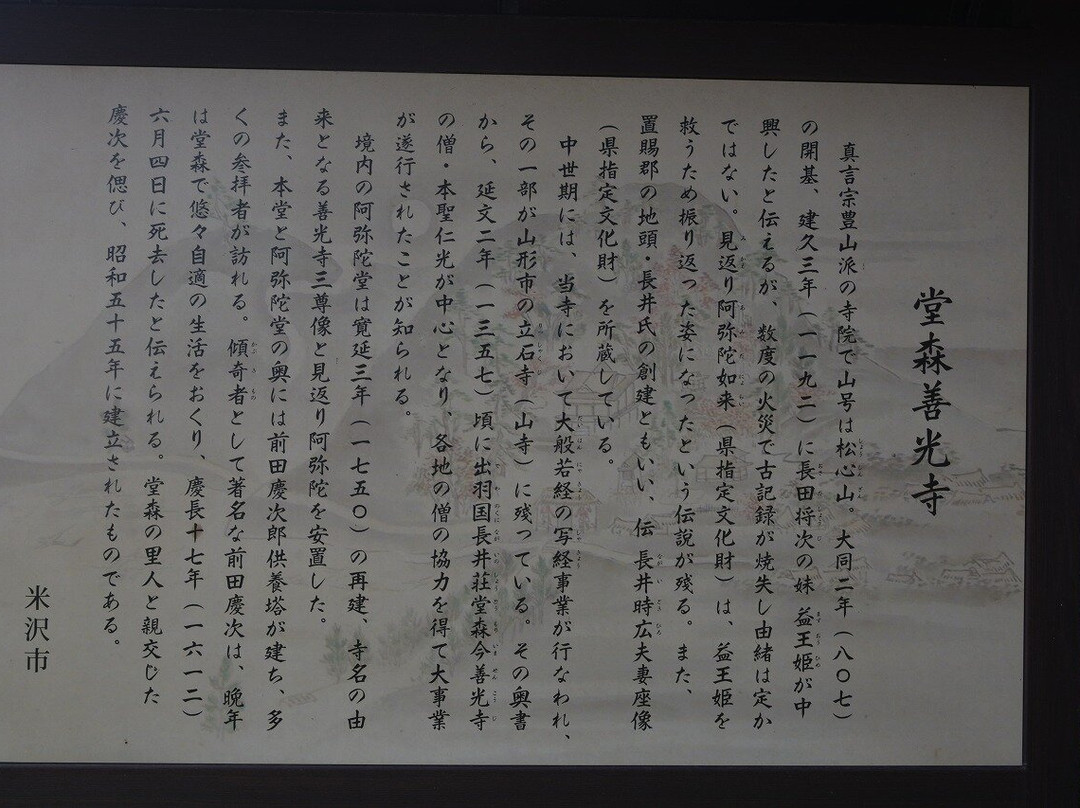 堂森善光寺
真言宗豊山派の寺院で山号は松心山。大同二年（八〇七）
の開基、建久三年（一一九二）に長田将次の妹 益王姫が中
興したと伝えるが、数度の火災で古記録が焼失し由緒は定か
ではない。見返り阿弥陀如来（県指定文化財）は、益王姫を
救うため振り返った姿になったという伝説が残る。また、
置賜郡の地頭・長井氏の創建ともいい、伝 長井時広夫妻座像
（県指定文化財）を所蔵している。
中世期には、当寺において大般若経の写経事業が行なわれ、
その一部が山形市の立石寺（山寺）に残っている。その奥書
から、延文二年（一三五七）頃に出羽国長井荘堂森今善光寺
の僧・本聖仁光が中心となり、各地の僧の協力を得て大事業
が遂行されたことが知られる。
境内の阿弥陀堂は寛延三年（一七五〇）の再建、寺名の由
来となる善光寺三尊像と見返り阿弥陀を安置した。
また、本堂と阿弥陀堂の奥には前田慶次郎供養塔が建ち、多
くの参拝者が訪れる。傾奇者として著名な前田慶次は、晩年
は堂森で悠々自適の生活をおくり、慶長十七年（一六一二）
六月四日に死去したと伝えられる。堂森の里人と親交じた
慶次を偲び、昭和五十五年に建立されたものである。
米沢市